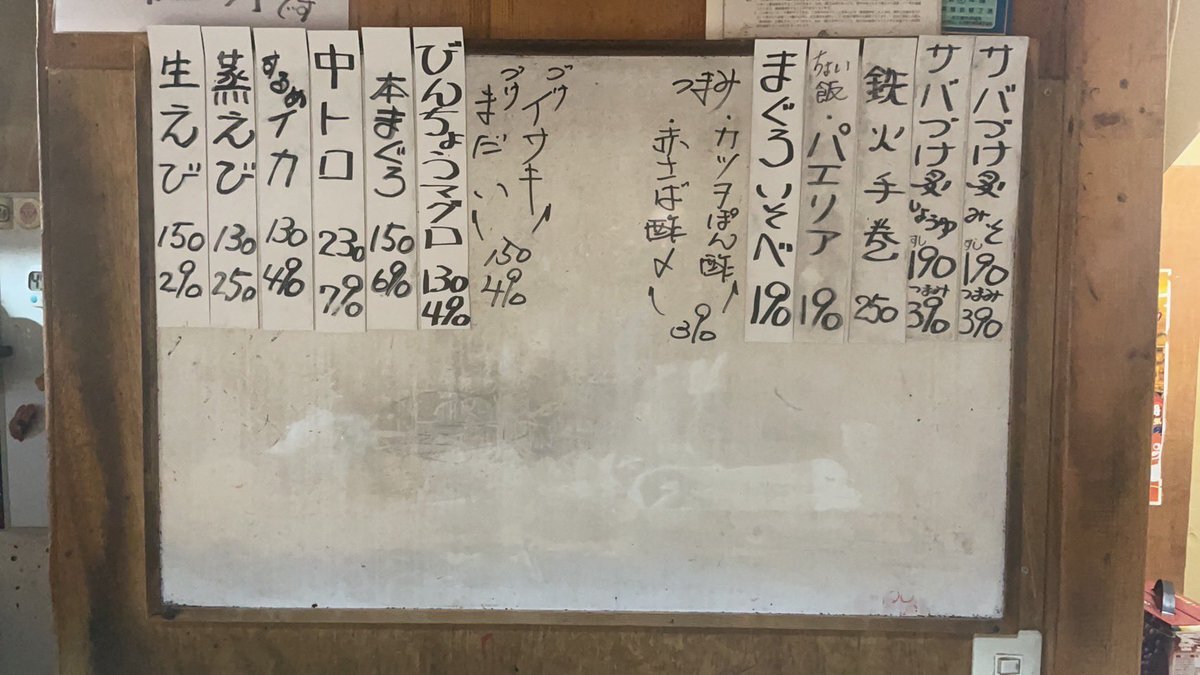 サバづけ炙 みそ
すし 190
つまみ 390
サバづけ炙 しょうゆ
すし 190
つまみ 390
鉄火手巻 250
ちょい飯・パエリア 190
まぐろいそべ 190
つまみ
・カツヲぽん酢
・赤さば酢〆
390
づけイサキ
づけまだい
150
490
びんちょうマグロ
130
490
本まぐろ
150
690
中トロ
230
790
するめイカ
130
490
蒸えび
130
250
生えび
150
290